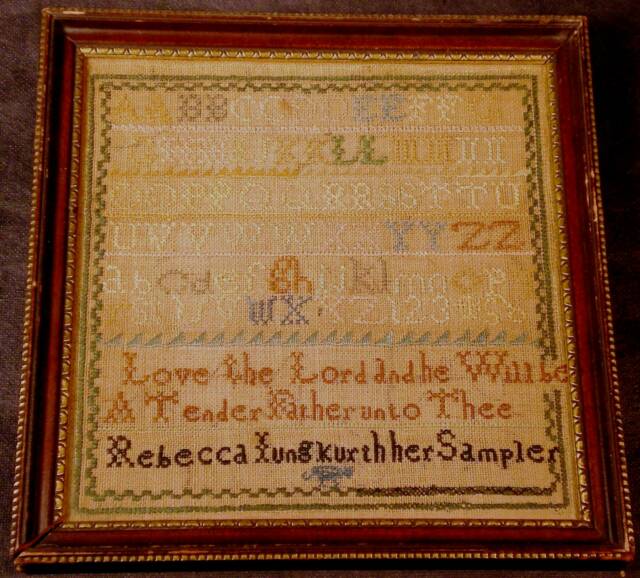 AABBCC EEFF
KKLLMM
PPQQRRSSTTU
UVV YYZZ
abcdef gh klmnop
WX Z123
Love the Lord and he Will be
A Tender Father unto Thee
Rebecca Iungkurth her Sampler